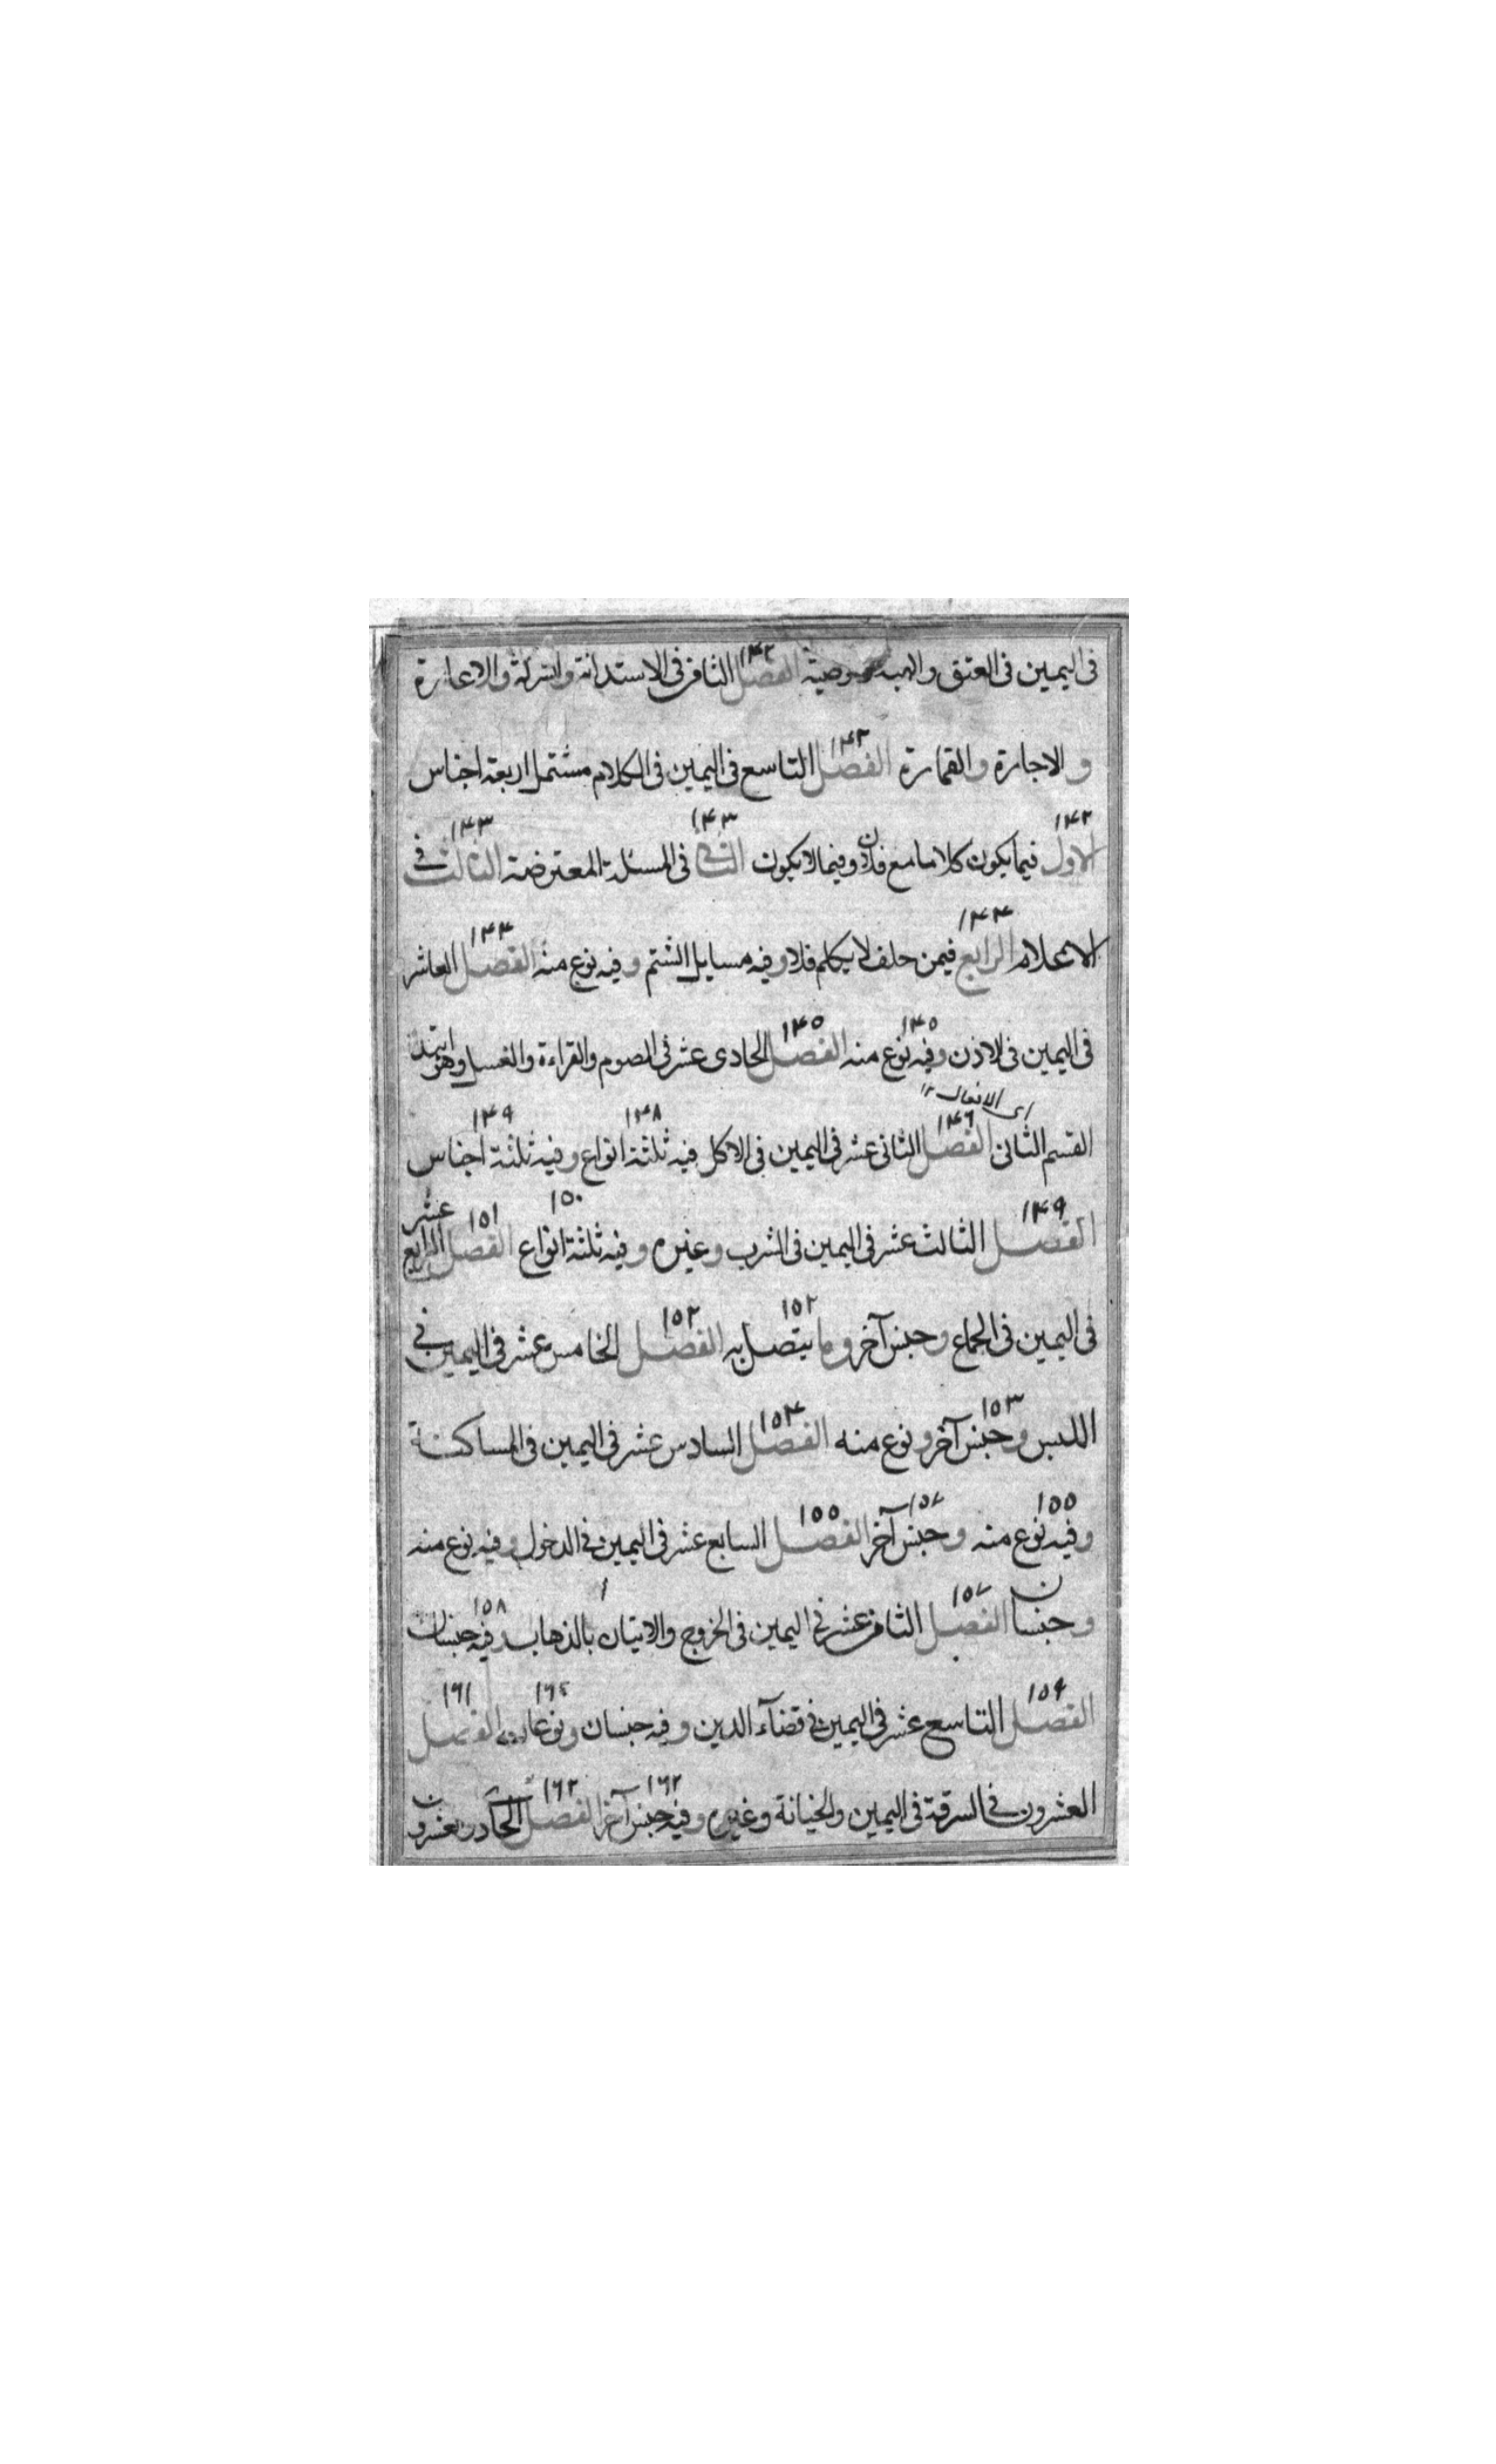 فى اليمين فى العتق والهبة الفصل ۱۴۲ الثامن فى الاستدانة والشركة والاعارة
و الاجارة والقمارة الفصل ۱۴۳ التاسع فى اليمين فى الكلام مشتمل اربعة اجناس
الاول ۱۴۲ فيما يكون كلاما مع فلان وفيما لا يكون الثانى ۱۴۳ فى المسئلة المعترضة الثالث ۱۴۳ فى
الاعلام الرابع ۱۴۴ فيمن حلف لا يكلم فلانا وفيه مسايل الشتم وفيه نوع منه الفصل ۱۴۴ العاشر
فى اليمين فى الاذن وفيه نوع منه ۱۴۵ الفصل ۱۴۵ الحادى عشر فى الصوم والقراءة والغسل وهو ابتدا
اى الافعال ۱۲
القسم الثانى الفصل ۱۴۶ الثانى عشر فى اليمين فى الاكل فيه ثلثة انواع ۱۴۸ وفيه ثلثة اجناس ۱۴۹
الفصل ۱۴۹ الثالث عشر فى اليمين فى الشرب وغيره وفيه ثلثة انواع ۱۵۰ الفصل ۱۵۱ الرابع عشر
فى اليمين فى الجماع وجنس آخر وما يتصل به ۱۵۲ الفصل ۱۵۲ الخامس عشر فى اليمين فى
اللبس وجنس آخر ۱۵۳ ونوع منه الفصل ۱۵۴ السادس عشر فى اليمين فى المساكنة
وفيه نوع منه ۱۵۵ وجنس آخر ۱۵۷ الفصل ۱۵۵ السابع عشر فى اليمين فى الدخول وفيه نوع منه
وجنسان الفصل ۱۵۷ الثامن عشر فى اليمين فى الخروج والاتيان بالذهاب وفيه جنسان ۱۵۸
الفصل ۱۵۹ التاسع عشر فى اليمين فى قضآء الدين وفيه جنسان ونوعان الفصل ۱۶۱
العشرون فى السرقة فى اليمين والخيانة وغيره وفيه جنس آخر ۱۶۲ الفصل ۱۶۲ الحادى والعشرون